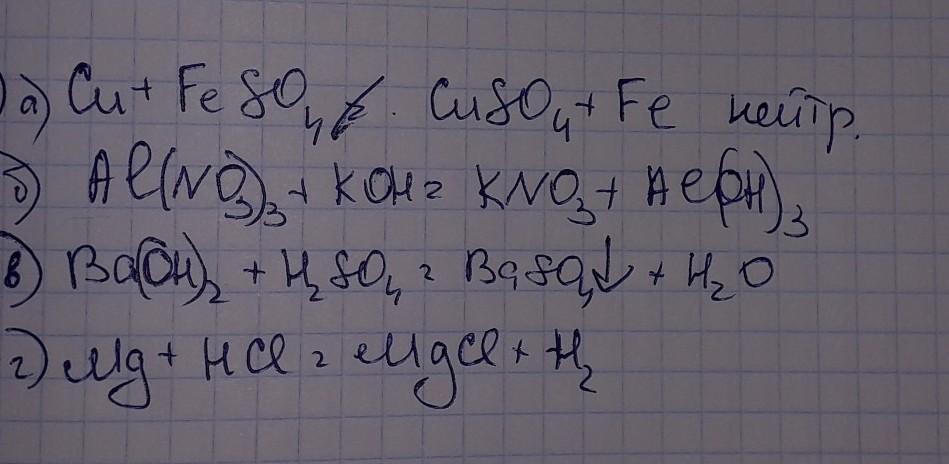 а) Cu + FeSO4 ≠ CuSO4 + Fe нейтр.
б) Al(NO3)3 + KOH = KNO3 + Al(OH)3
в) Ba(OH)2 + H2SO4 = BaSO4↓ + H2O
г) Mg + HCl = MgCl + H2